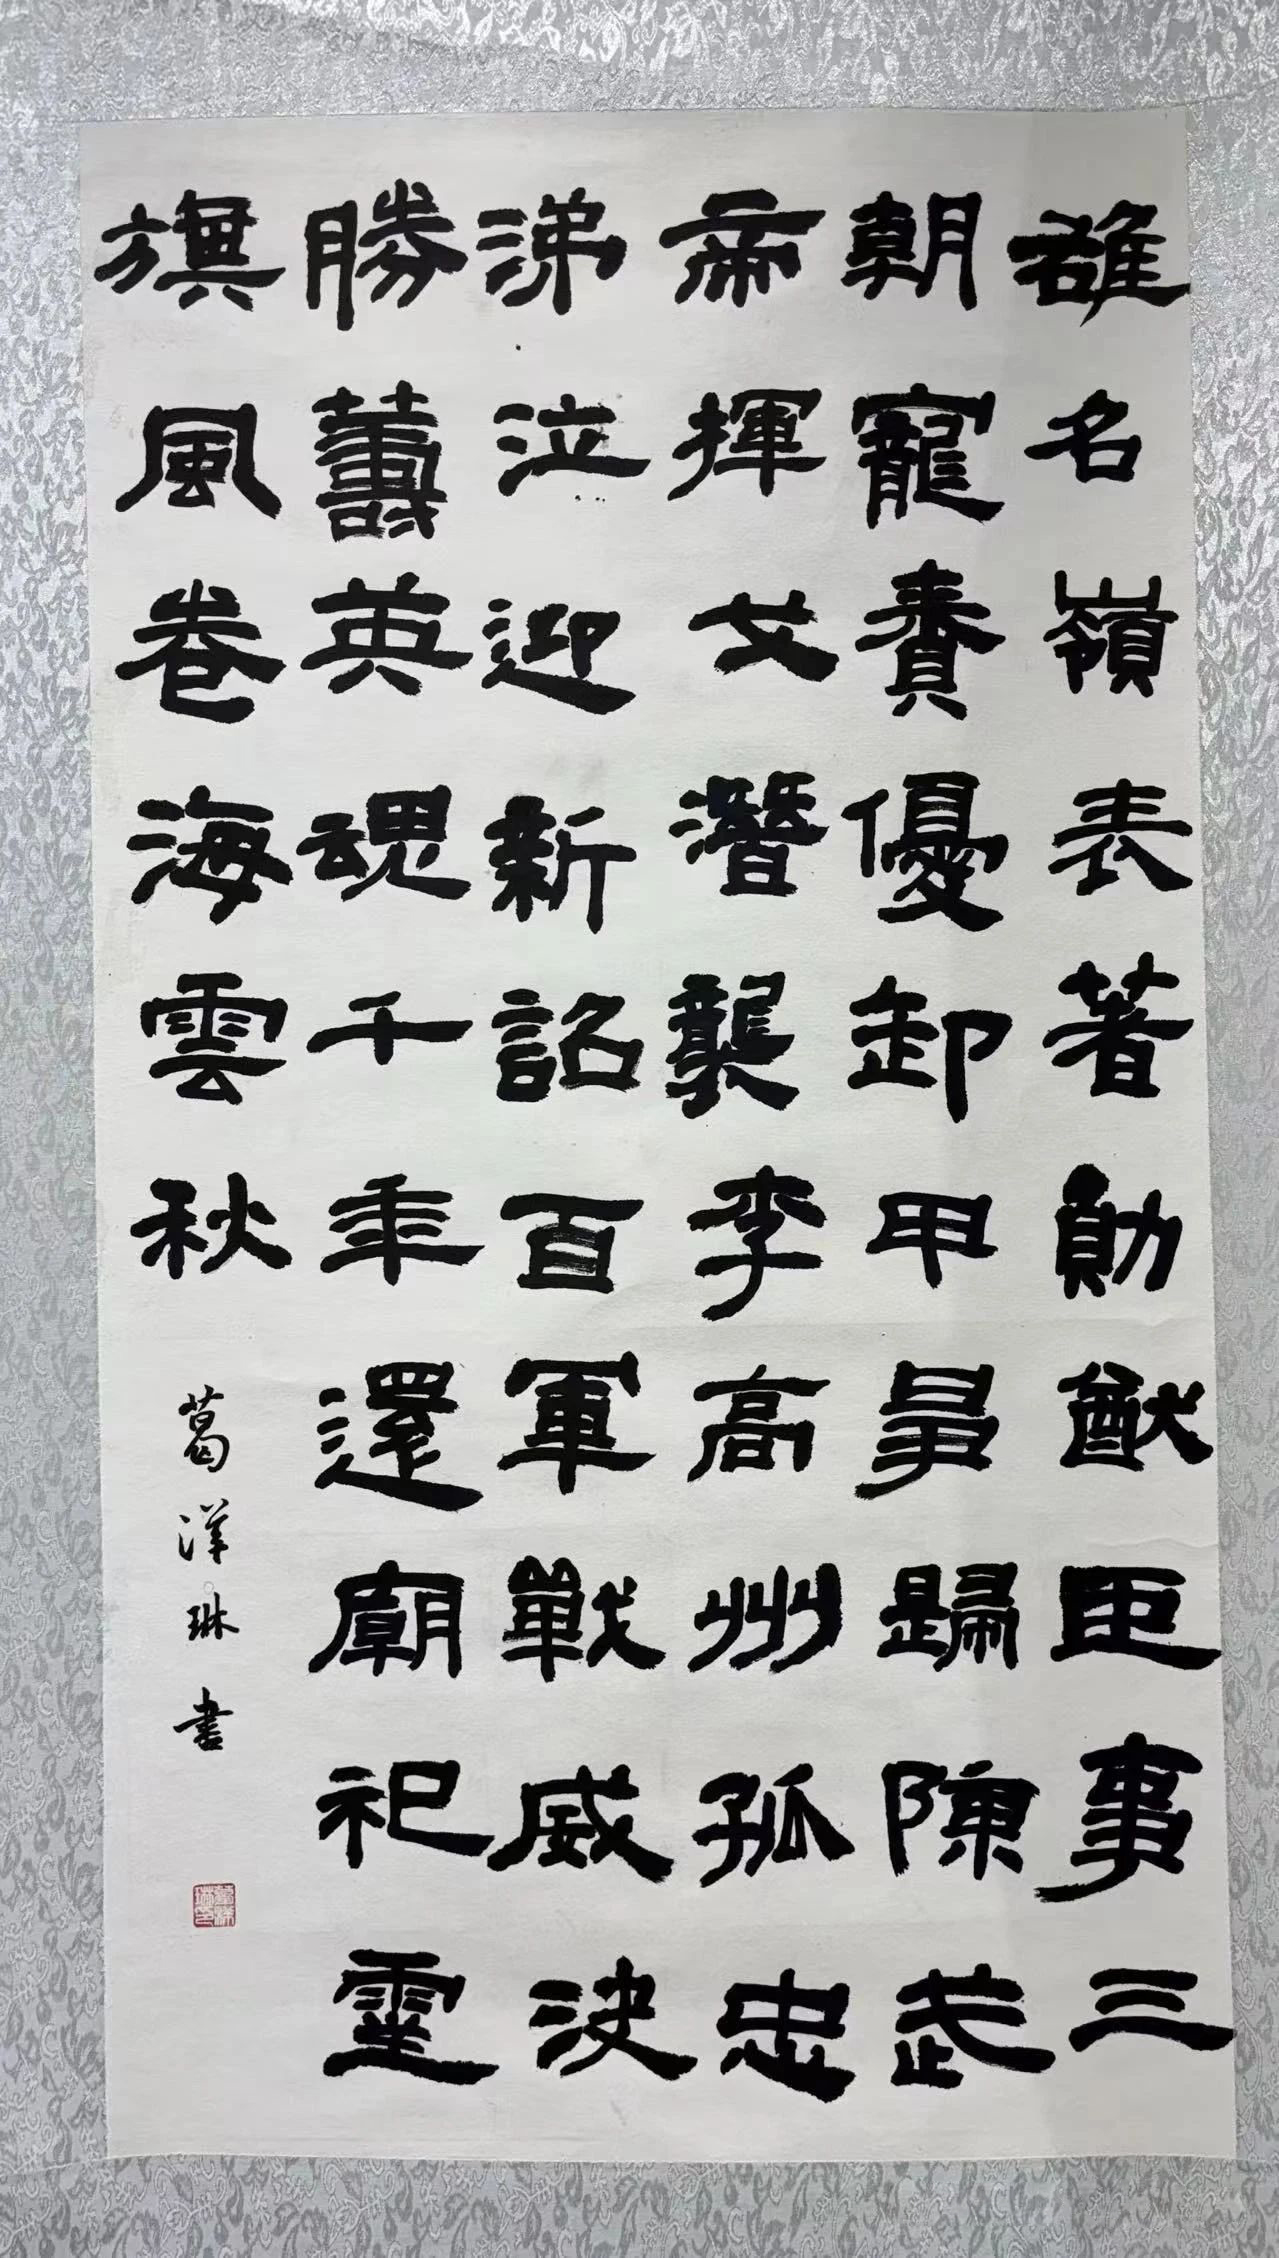 雄名嶺表著勛猷臣事三
朝寵賚優卸甲歸陳武
帝揮戈潛襲李高州孤忠
涕泣迎新詔百軍戰威決
勝籌英魂千年還廟祀靈
旗風卷海雲秋
葛洋琳書